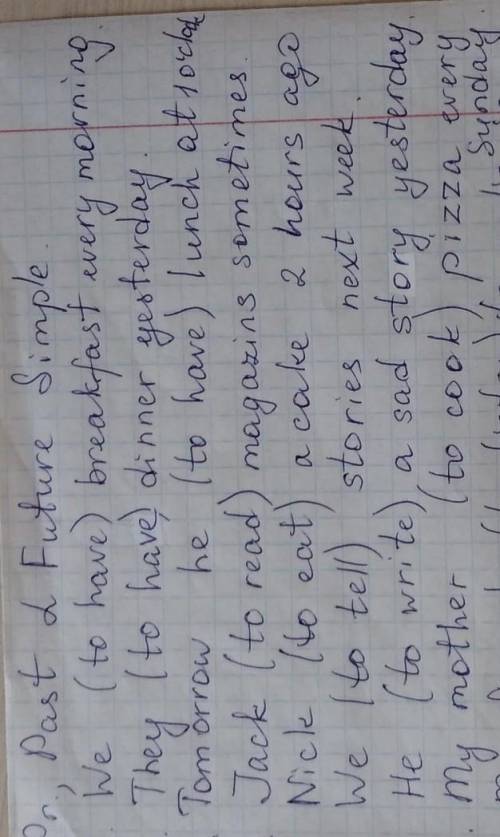 Pr., Past & Future Simple.
We (to have) breakfast every morning.
They (to have) dinner yesterday.
Tomorrow he (to have) lunch at 1 o'clock
Jack (to read) magazins sometimes.
Nick (to eat) a cake 2 hours ago
We (to tell) stories next week.
He (to write) a sad story yesterday.
My mother (to cook) pizza every
Sunday